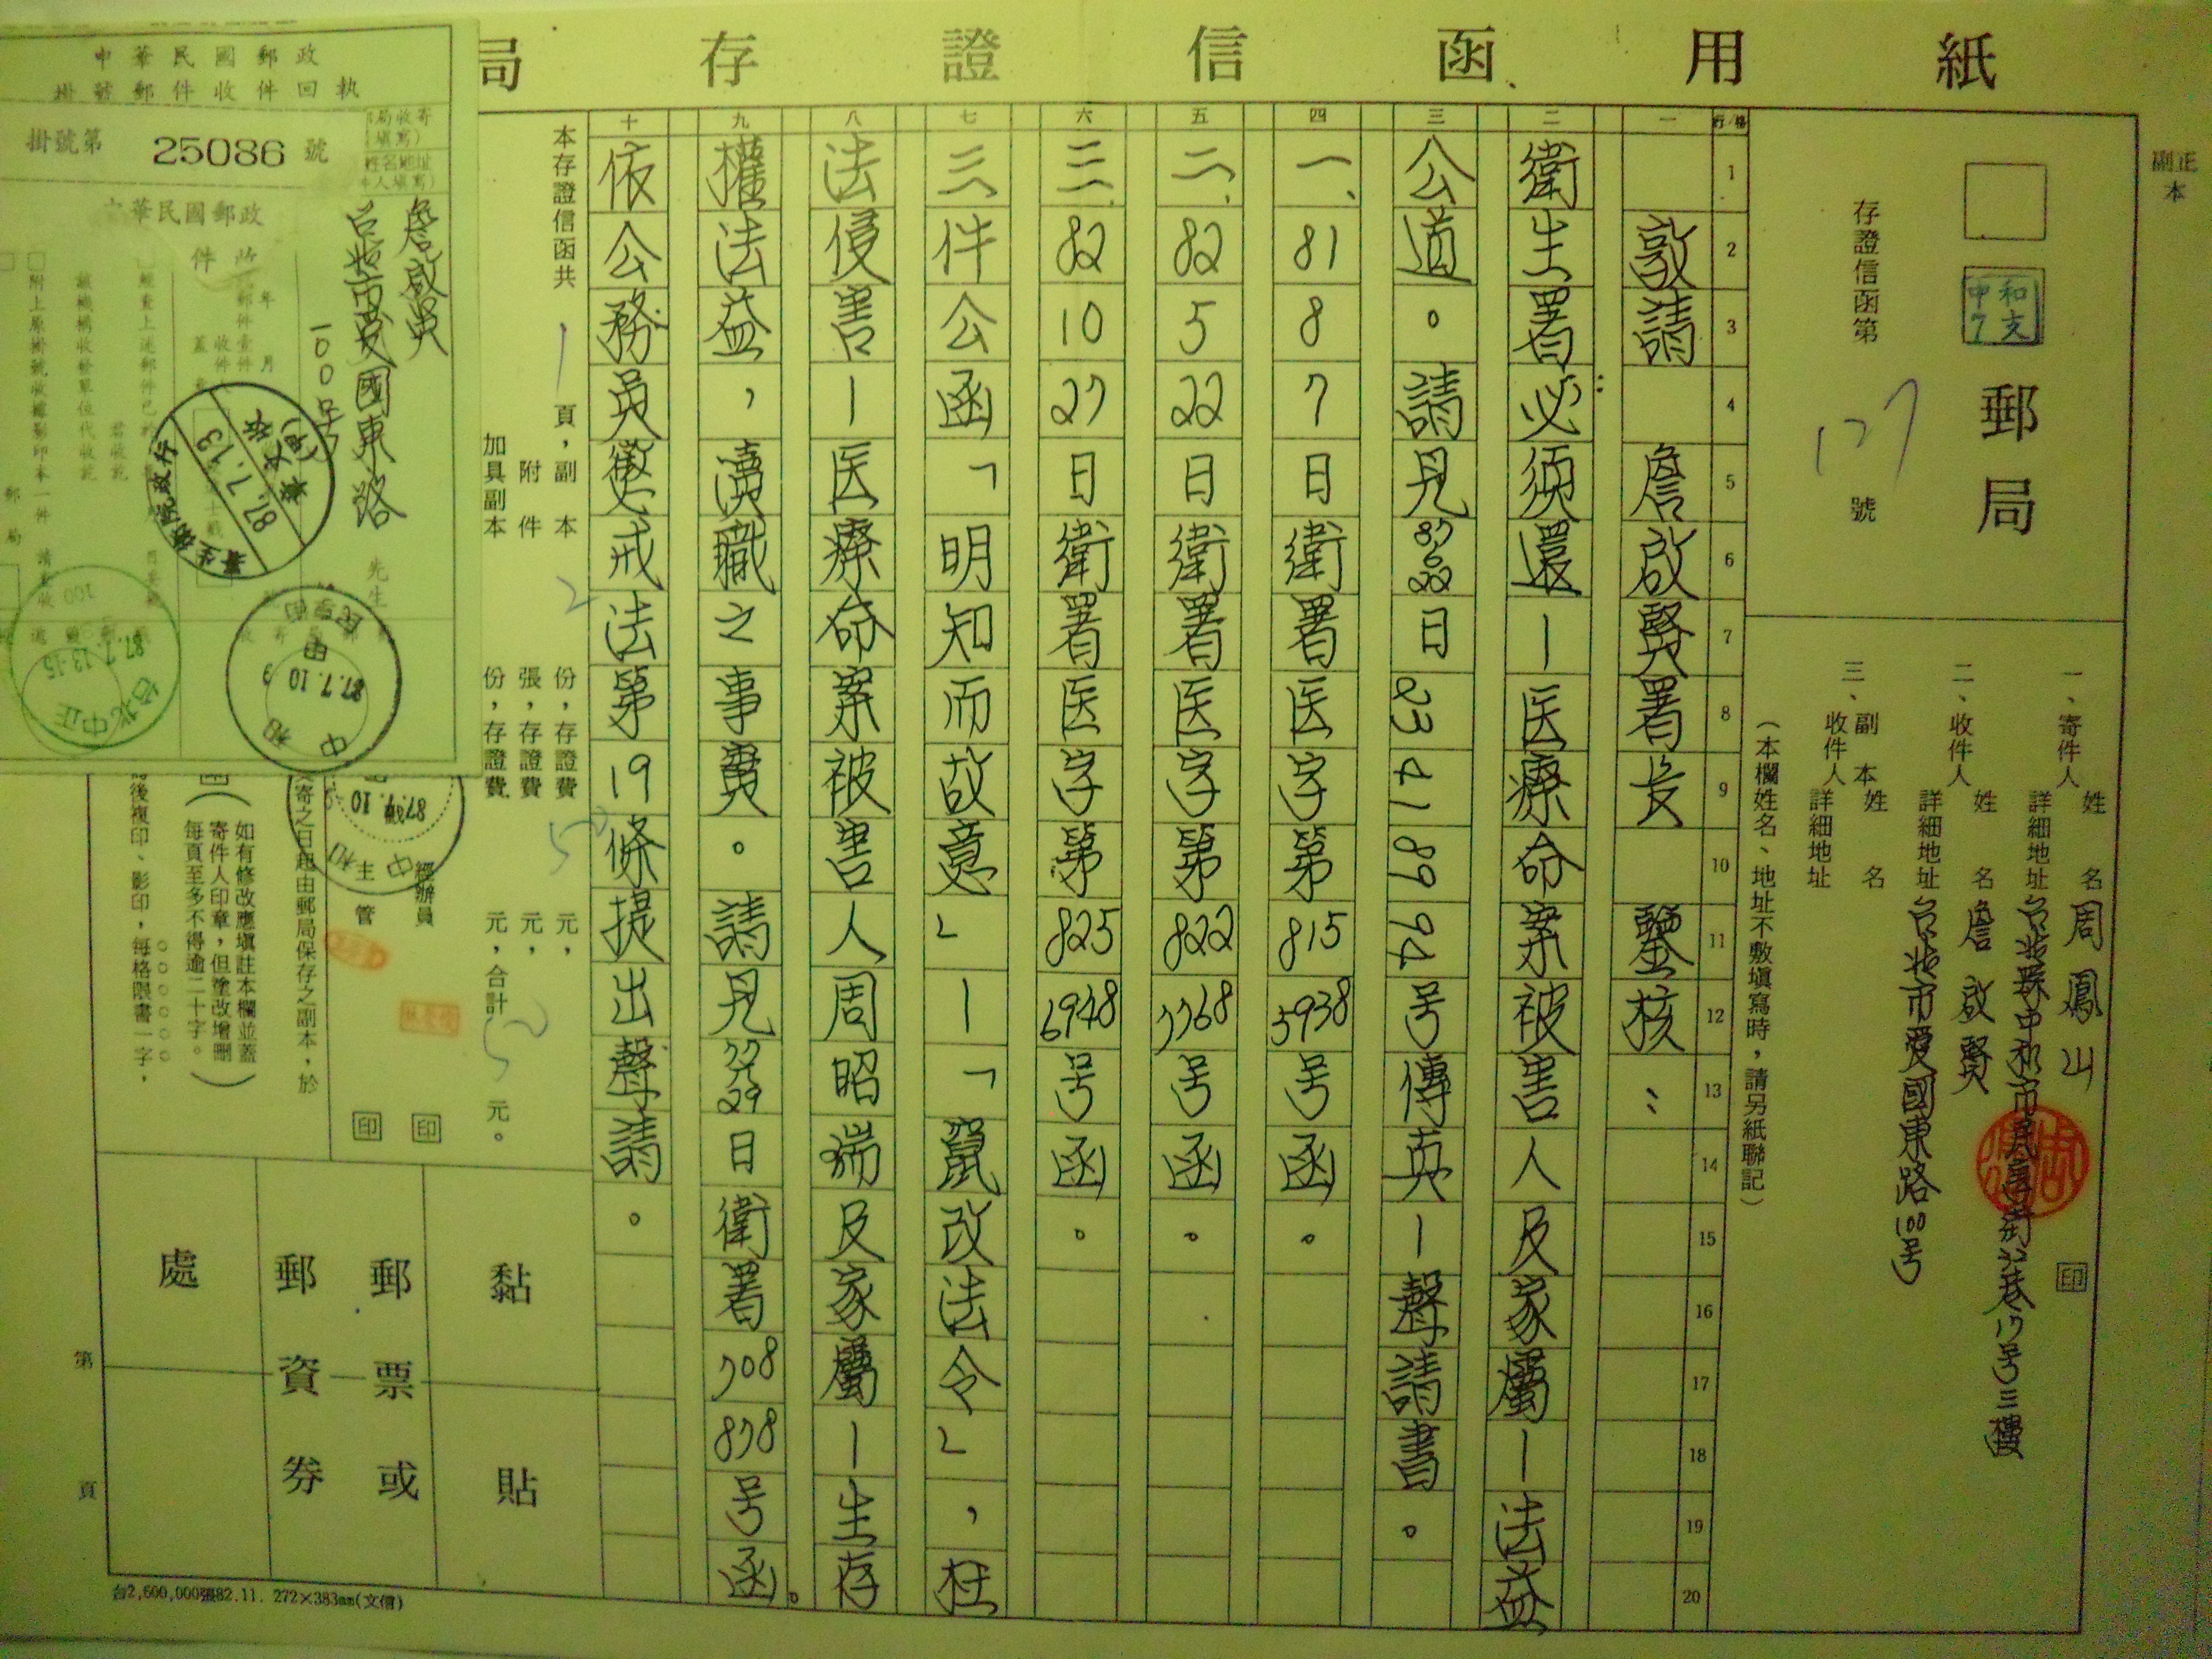 局存證信函用紙
副正本
郵局
存證信函第127號
一、寄件人 姓名 周鳳山
詳細地址 台北縣中和市
二、收件人 姓名 詹啟賢
詳細地址 台北市愛國東路100号
三、副本收件人 姓名
詳細地址
(本欄姓名、地址不敷填寫時,請另紙聯記)
行/格 1 2 3 4 5 6 7 8 9 10 11 12 13 14 15 16 17 18 19 20
一 敦請 詹啟賢署長 鑒核:
二 衛生署必須還-医療命案被害人及家屬-法益
三 公道。請見87 6 22日23418974号傳真-聲請書。
四 一、81 8 7日衛署医字第815 5938号函。
五 二、82 5 22日衛署医字第822 7768号函。
六 三、82 10 27日衛署医字第825 6948号函。
七 三件公函「明知而故意」-「竄改法令」,枉
八 法侵害-医療命案被害人周昭端及家屬-生存
九 權法益,瀆職之事實。請見77 7 29日衛署708 878号函。
十 依公務員懲戒法第19條提出聲請。
本存證信函共1頁,副本2份,存證費50元,
附件 張,存證費 元,
加具副本 份,存證費 元,合計 元。
經辦員 印
主管 印
寄之日起由郵局保存之副本,於
如有修改應填註本欄並蓋
寄件人印章,但塗改增刪
每頁至多不得逾二十字。
後複印、影印,每格限書一字,
黏貼
郵票或
郵資券
處
第 頁
台2,600,000張82.11. 272×383mm(文信)
中華民國郵政
掛號郵件收件回執
掛號第25086號
詹啟賢 先生
台北市愛國東路
100号
中華民國郵政
行政院衛生署
87.7.13
87.7.10
中和
台北中正
87.7.13-15